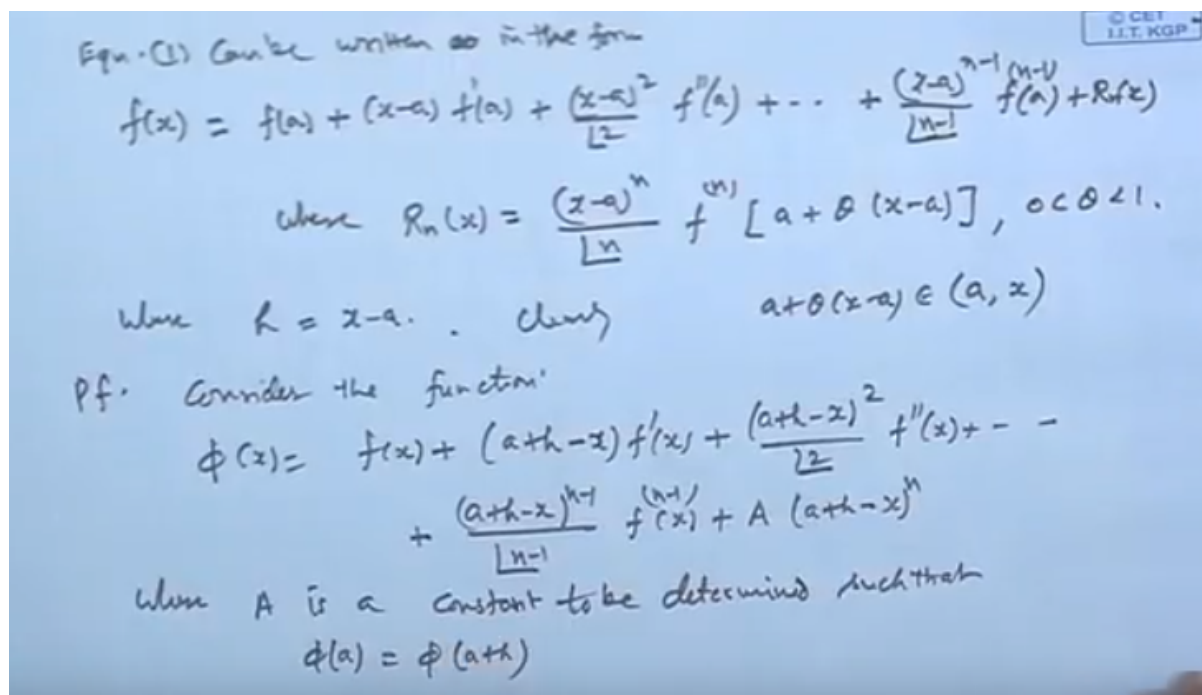 © CET
I.I.T. KGP
Eqn. (1) Can be written as in the form
f(x) = f(a) + (x-a) f'(a) + (x-a)²/⌊2 f''(a) + -- + (x-a)ⁿ⁻¹/⌊n-1 f⁽ⁿ⁻¹⁾(a) + Rₙ(x)
where Rₙ(x) = (x-a)ⁿ/⌊n f⁽ⁿ⁾ [a + θ (x-a)], 0<θ<1.
where h = x-a. . Clearly a+θ(x-a) ∈ (a, x)
Pf. Consider the function
ϕ(x) = f(x) + (a+h-x) f'(x) + (a+h-x)²/⌊2 f''(x) + - -
+ (a+h-x)ⁿ⁻¹/⌊n-1 f⁽ⁿ⁻¹⁾(x) + A (a+h-x)ⁿ
where A is a constant to be determined such that
ϕ(a) = ϕ(a+h)